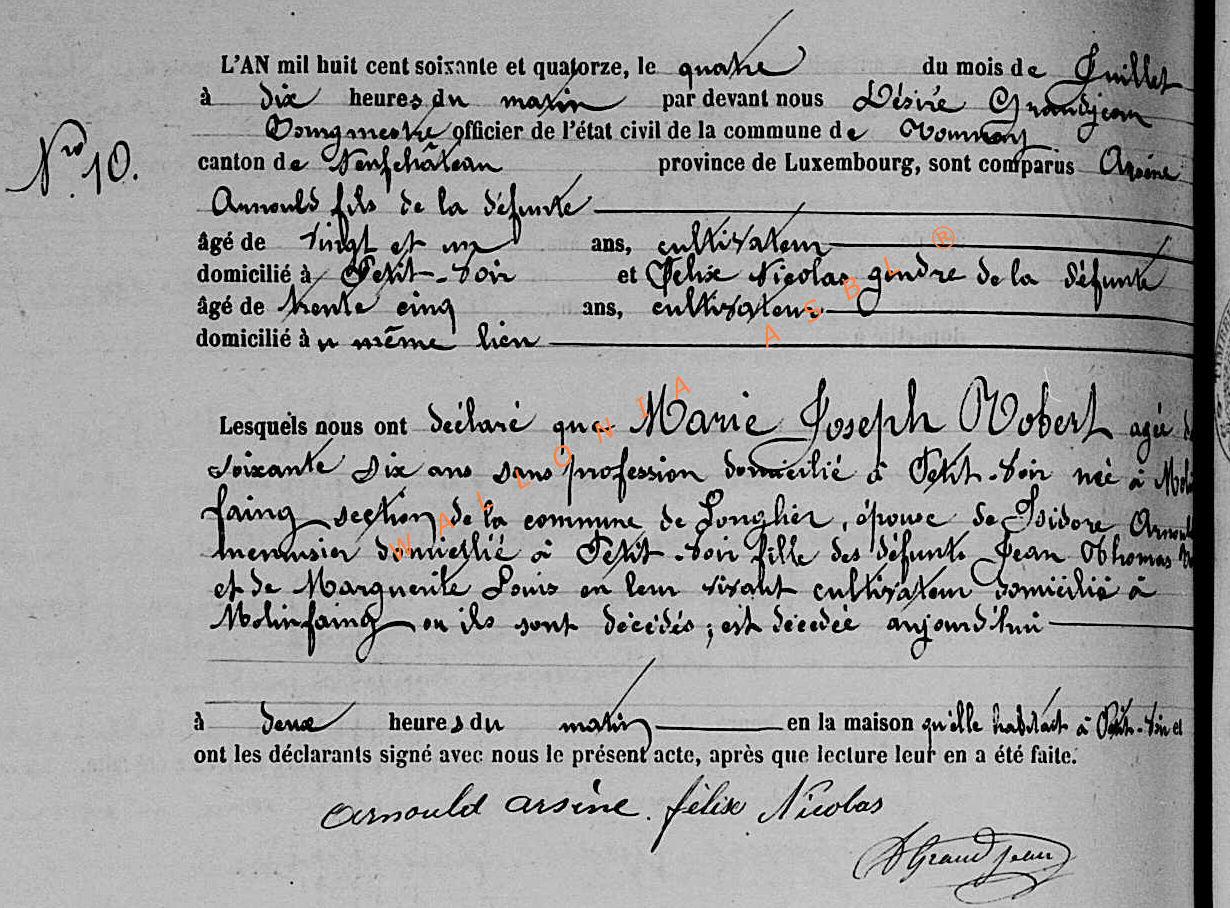 L'AN mil huit cent soixante et quatorze, le quatre du mois de Juillet
à dix heures du matin par devant nous Désiré Grandjean
Bourgmestre officier de l'état civil de la commune de Tournay
Nro 10.
canton de Neufchâteau province de Luxembourg, sont comparus Arsène
Arnould fils de la défunte
âgé de vingt et un ans, cultivateur
domicilié à Petit-Voir et Félix Nicolas gendre de la défunte
âgé de trente cinq ans, cultivateur
domicilié à même lieu
Lesquels nous ont déclaré que Marie Joseph Robert agée de
soixante dix ans sans profession domicilié à Petit-Voir née à Molin
faing section de la commune de Longlier, épouse de Isidore Arnould
menuisier domicilié à Petit-Voir fille des défunts Jean Thomas
et de Marguerite Louis en leur vivant cultivateur domicilié à
Molinfaing ou ils sont décédés ; est décédée aujourd'hui
à deux heures du matin en la maison qu'elle habitait à Petit-Voir et
ont les déclarants signé avec nous le présent acte, après que lecture leur en a été faite.
Arnould arsène. félix Nicolas
D Grandjean
WALLONIA ASBL ®